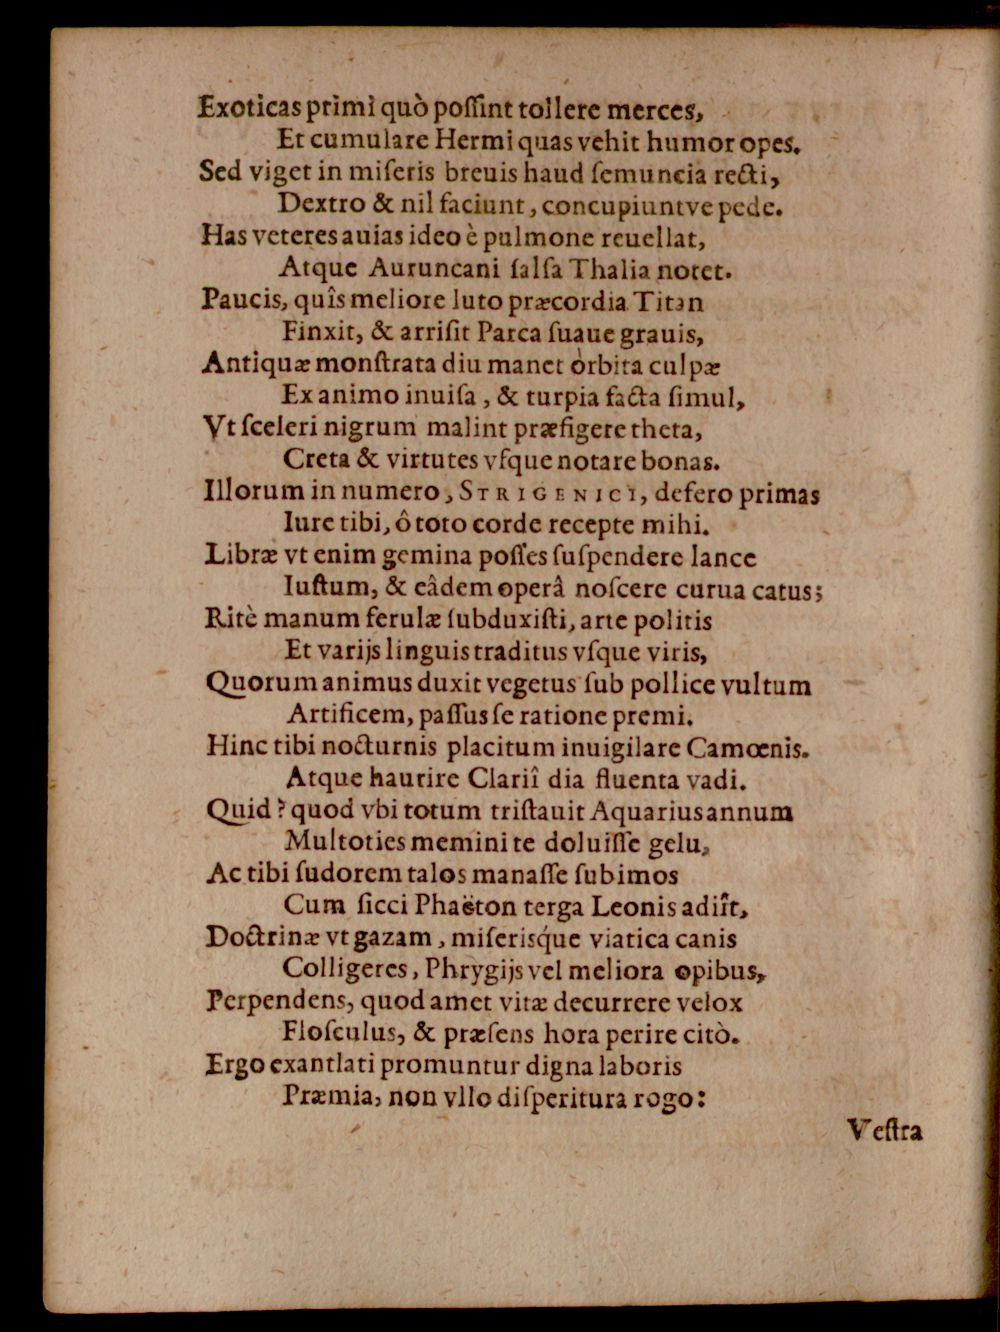 Exoticas primi quò poſſint tollere merces,
Et cumulare Hermi quas vehit humor opes.
Sed viget in miſeris breuis haud ſemuncia recti,
Dextro & nil faciunt, concupiuntve pede.
Has veteres auias ideo è pulmone reuellat,
Atque Auruncani ſalſa Thalia notet.
Paucis, quîs meliore luto præcordia Titan
Finxit, & arriſit Parca ſuaue grauis,
Antiquæ monſtrata diu manet òrbita culpæ
Ex animo inuiſa, & turpia facta ſimul,
Vt ſceleri nigrum malint præfigere theta,
Creta & virtutes vſque notare bonas.
Illorum in numero, STRIGENICI, defero primas
Iure tibi, ô toto corde recepte mihi.
Libræ vt enim gemina poſſes ſuſpendere lance
Iuſtum, & eâdem operâ noſcere curua catus;
Ritè manum ferulæ ſubduxiſti, arte politis
Et varijs linguis traditus vſque viris,
Quorum animus duxit vegetus ſub pollice vultum
Artificem, paſſus ſe ratione premi.
Hinc tibi nocturnis placitum inuigilare Camœnis.
Atque haurire Clariî dia fluenta vadi.
Quid? quod vbi totum triſtauit Aquarius annum
Multoties memini te doluiſſe gelu,
Ac tibi ſudorem talos manaſſe ſubimos
Cum ſicci Phaëton terga Leonis adiît,
Doctrinæ vt gazam, miſerisq́ue viatica canis
Colligeres, Phrygijs vel meliora opibus,
Perpendens, quod amet vitæ decurrere velox
Floſculus, & præſens hora perire citò.
Ergo exantlati promuntur digna laboris
Præmia, non vllo diſperitura rogo:
Veſtra